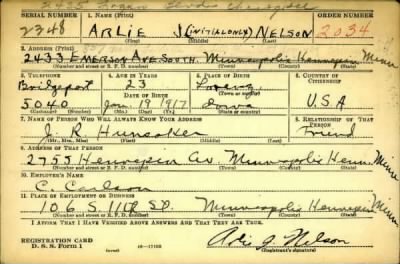 2425 Logan
SERIAL NUMBER 1. NAME (Print) ORDER NUMBER
2348 ARLIE J(INITIAL ONLY) NELSON 2034
(First) (Middle) (Last)
2. ADDRESS (Print)
2433 EMERSON AVE SOUTH. Minneapolis Hennepin Minn
(Number and street or R. F. D. number) (Town) (County) (State)
3. TELEPHONE 4. AGE IN YEARS 5. PLACE OF BIRTH 6. COUNTRY OF CITIZENSHIP
Bridgeport 23
DATE OF BIRTH (Town or county)
5040 Jan 19 1917 Iowa U.S.A
(Exchange) (Number) (Mo.) (Day) (Yr.) (State or country)
7. NAME OF PERSON WHO WILL ALWAYS KNOW YOUR ADDRESS 8. RELATIONSHIP OF THAT PERSON
J. R. Hunsaker friend
(Mr., Mrs., Miss) (First) (Middle) (Last)
9. ADDRESS OF THAT PERSON
2755 Hennepin Av. Minneapolis Henn. Minn
(Number and street or R. F. D. number) (Town) (County) (State)
10. EMPLOYER'S NAME
C. Carlson
11. PLACE OF EMPLOYMENT OR BUSINESS
106 S. 11th St. Minneapolis Hennepin Minn
(Number and street or R. F. D. number) (Town) (County) (State)
I AFFIRM THAT I HAVE VERIFIED ABOVE ANSWERS AND THAT THEY ARE TRUE.
REGISTRATION CARD
D. S. S. Form 1 Arlie J. Nelson
(Registrant's signature)